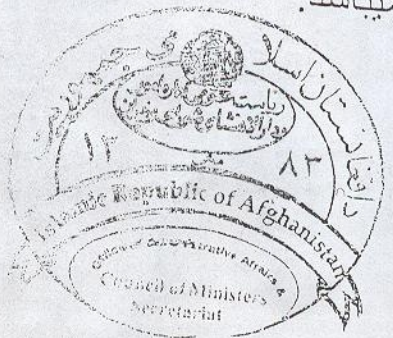 میباشد.
د افغانستان اسلامی جمهوریت
ریاست عمومی اداره امور
و دارالانشای شورای وزیران
۱۳ ۸۳
Islamic Republic of Afghanistan
Office of Administrative Affairs &
Council of Ministers
Secretariat